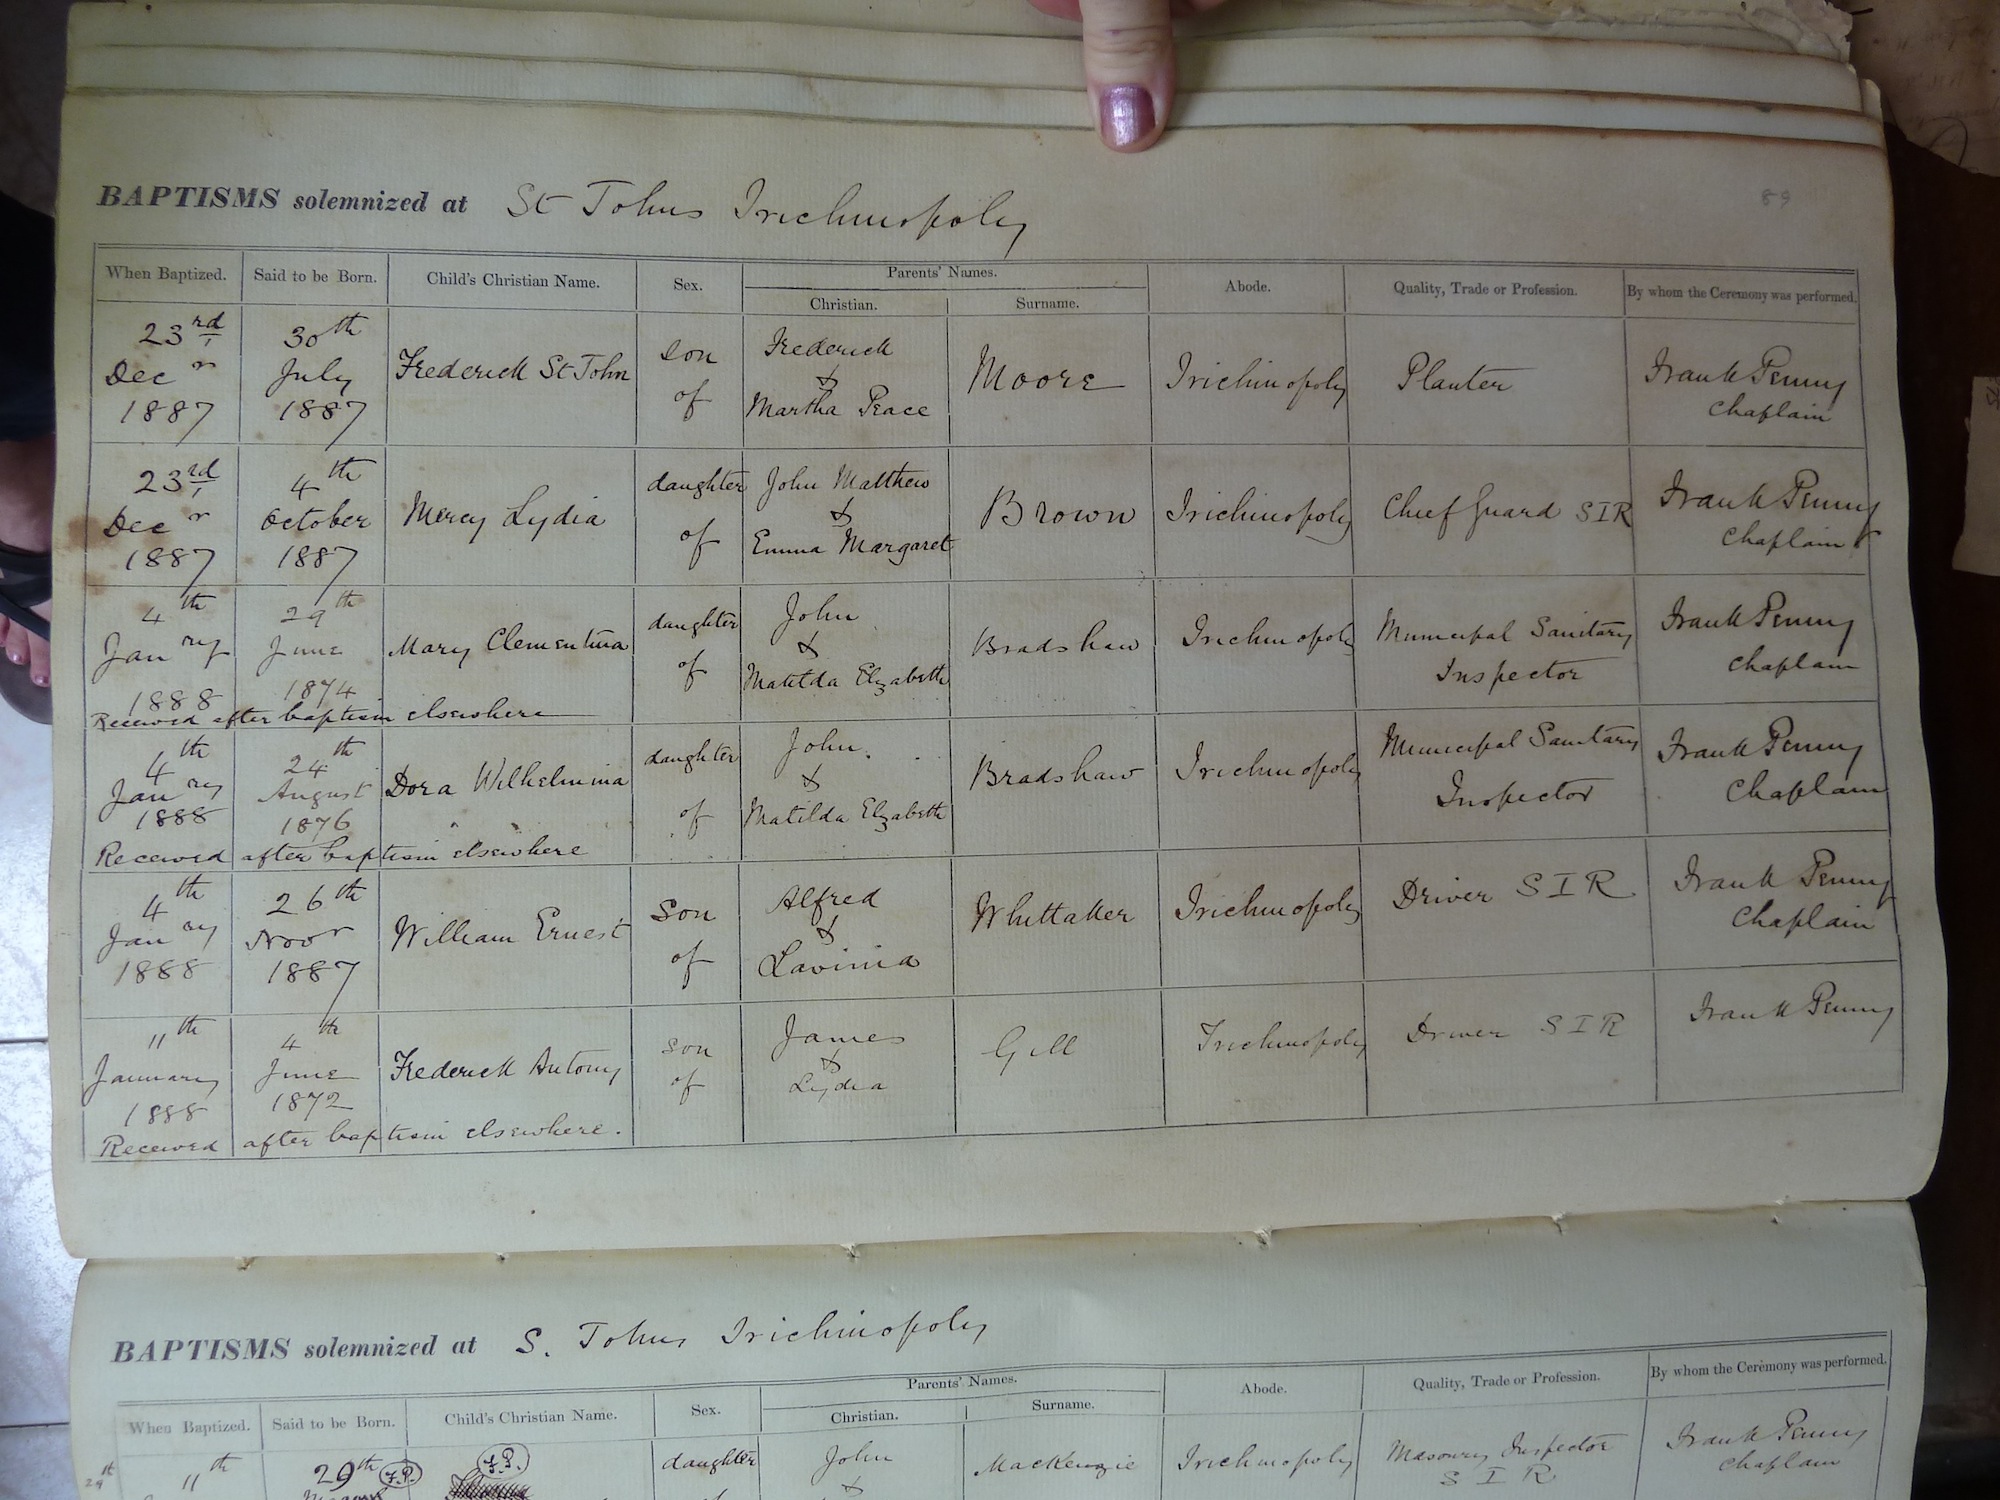 89
BAPTISMS solemnized at St Johns Trichinopoly
When Baptized. Said to be Born. Child's Christian Name. Sex. Parents' Names. Abode. Quality, Trade or Profession. By whom the Ceremony was performed.
Christian. Surname.
23rd Decr 1887 30th July 1887 Frederick St John son of Frederick & Martha Peace Moore Trichinopoly Planter Frank Penny Chaplain
23rd Decr 1887 4th October 1887 Mercy Lydia daughter of John Matthew & Emma Margaret Brown Trichinopoly Chief Guard SIR Frank Penny Chaplain
4th Janry 1888 29th June 1874 Mary Clementina daughter of John & Matilda Elizabeth Bradshaw Trichinopoly Municipal Sanitary Inspector Frank Penny Chaplain
Received after baptism elsewhere
4th Janry 1888 24th August 1876 Dora Wilhelmina daughter of John & Matilda Elizabeth Bradshaw Trichinopoly Municipal Sanitary Inspector Frank Penny Chaplain
Received after baptism elsewhere
4th Janry 1888 26th Novr 1887 William Ernest son of Alfred & Lavinia Whittaker Trichinopoly Driver SIR Frank Penny Chaplain
11th January 1888 4th June 1872 Frederick Antony son of James & Lydia Gill Trichinopoly Driver SIR Frank Penny
Received after baptism elsewhere.
BAPTISMS solemnized at S. Johns Trichinopoly
When Baptized. Said to be Born. Child's Christian Name. Sex. Parents' Names. Abode. Quality, Trade or Profession. By whom the Ceremony was performed.
Christian. Surname.
11th 29th F.P. F.P. daughter John & MacKenzie Trichinopoly Masonry Inspector SIR Frank Penny Chaplain